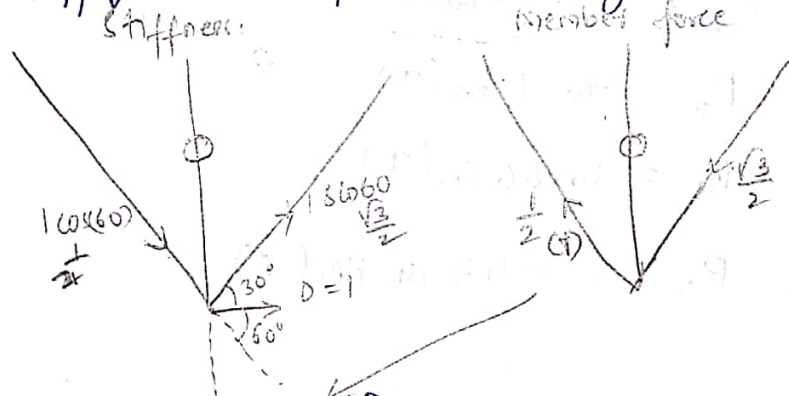 Stiffness.
Member force
1 cos(60)
1/2
1 sin60
√3/2
30°
D = 1
60°
1/2 (T)
√3/2